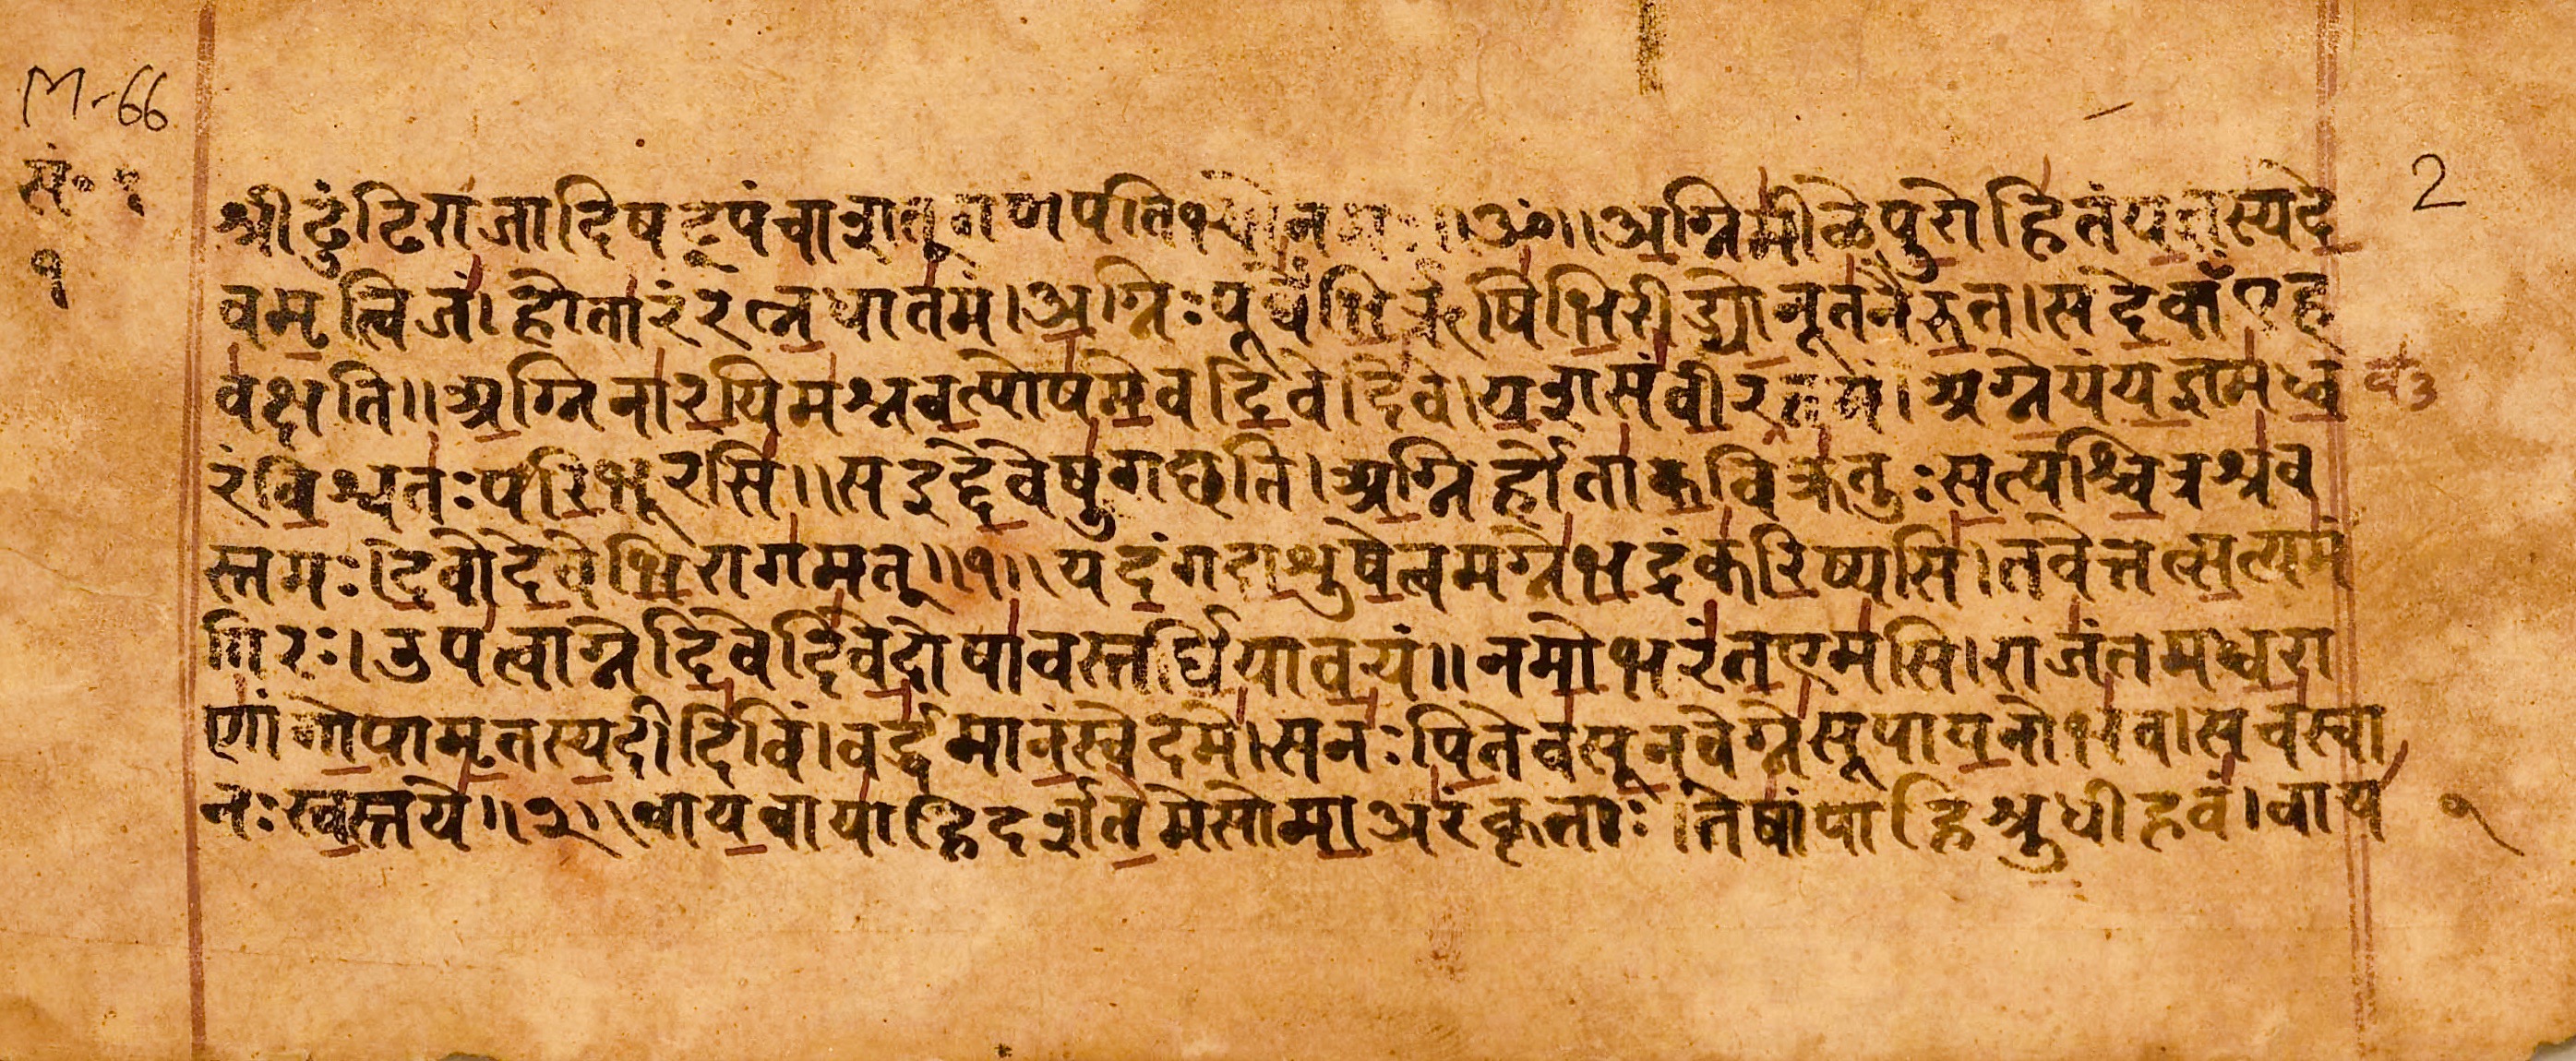 M-66
सं० १
2
१
श्रीढुंढिराजादिषट्पंचाशत्गणपतिभ्योनमः॥ॐ॥अ॒ग्निमी॑ळेपु॒रोहि॑तंय॒ज्ञस्य॑दे॒
वमृ॒त्विज॑ं।होता॑रंरत्न॒धात॑मं।अ॒ग्निःपूर्वे॑भि॒र्ऋषि॑भि॒रीड्यो॒नूत॑नैरु॒त।सदे॒वाँएह
व॑क्षति॥अ॒ग्निना॑र॒यिम॑श्नव॒त्पोष॑मे॒वदि॒वेदि॑वे।य॒शसं॑वी॒रव॑त्तमं।अग्ने॒यंय॒ज्ञम॑ध्व॒
रंवि॒श्वतः॑परि॒भूरसि॑॥सइद्दे॒वेषु॑गछति।अ॒ग्निर्होता॑क॒विक्र॑तुःस॒त्यश्चि॒त्रश्र॑व
स्तमः।दे॒वोदे॒वेभि॒राग॑मत्॥१॥यदं॒गदा॒शुषे॒त्वमग्ने॑भ॒द्रंक॑रि॒ष्यसि॑।तवेत्तत्स॒त्यमं॑
गिरः।उप॑त्वाग्नेदि॒वेदि॑वे॒दोषा॑वस्तर्धि॒याव॒यं॥नमो॒भरं॑त॒एम॑सि।राजं॑तमध्व॒रा
णां॑गो॒पामृ॒तस्य॒दीदि॑विं।वर्द्ध॑मानं॒स्वेदमे॑।सनः॑पि॒तेव॑सू॒नवेग्ने॑सूपाय॒नोभ॑व।सच॑स्वा
नःस्व॒स्तये॑॥२॥वाय॒वाया॑हिदर्शत॒मेसोमा॒अरं॑कृताः।तेषां॑पाहिश्रु॒धीहवं॑।वाय॑
१